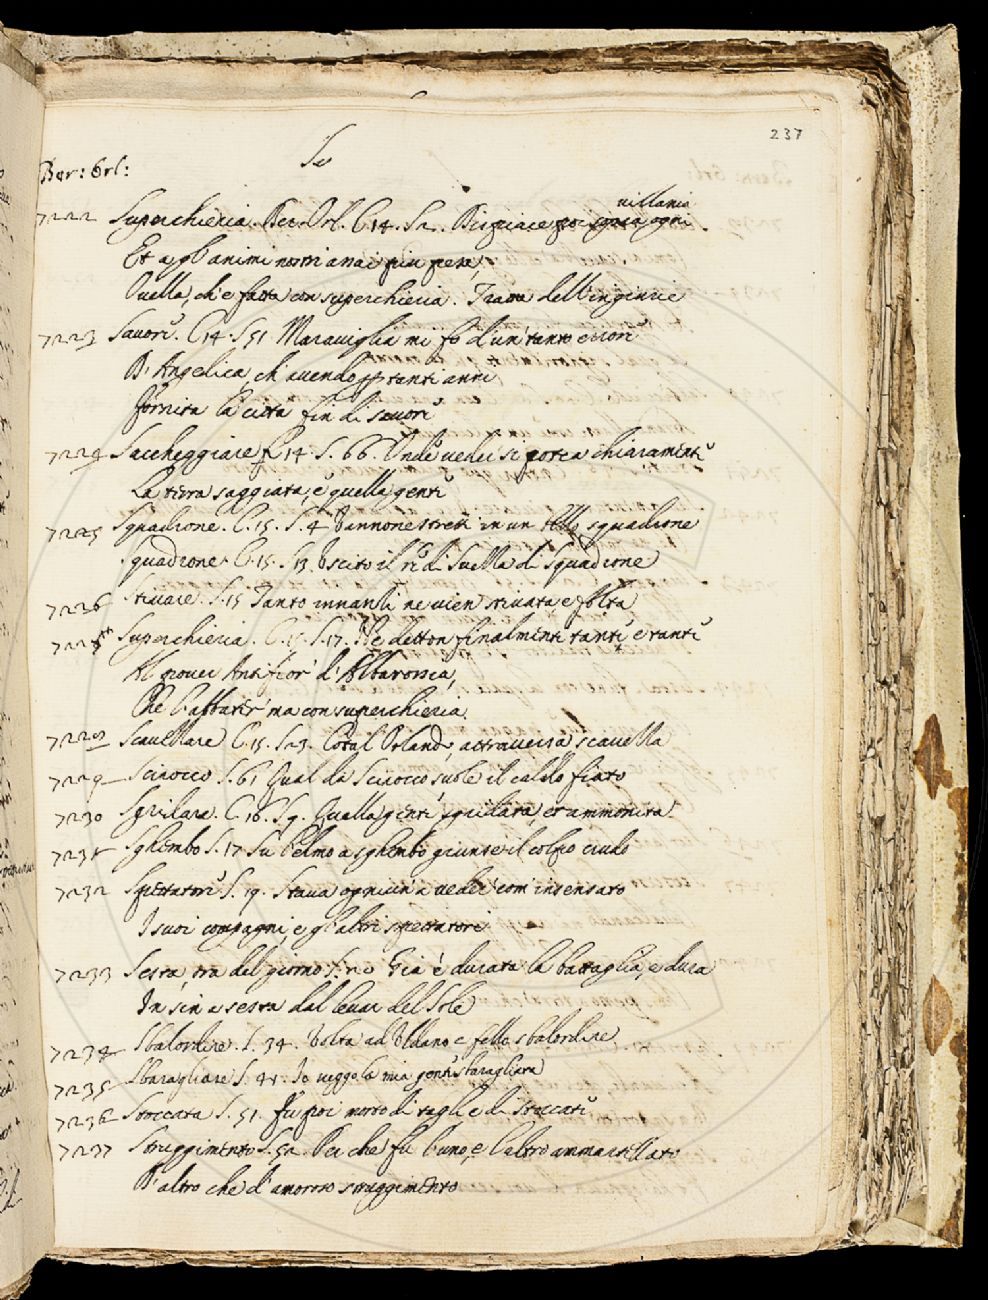 237
Ber: Orl:
7222 Superchieria. Ber. Orl. C. 14. S. 2. Dispiace poi ogni villania
Et agl'animi nostri assai più pesa,
Quella, ch'e fatta con superchieria. Tratta dell'ingiurie
7223 Savori. C. 14. S. 51. Maraviglia mi fò d'un tanto errore
D'Angelica, ch'avendo per tanti anni
Fornita la città fin di savori
7224 Saccheggiare C. 14. S. 66. Onde veder si potea chiaramente
La terra saggiata, e quella gente
7225 Squadrone. C. 15. S. 4 Vannone stretti in un squadrone
Squadrone C. 15. S. 13 Uscito il re di Suella di Squadrone
7226 Stivare. S. 15 Tanto innanzi ne vien stivata e folta
Superchieria. C. 15. S. 17. Ne detton finalmente tante e tante
Al giovar Antifior d'Albarossia,
Che l'abbatter' ma con superchieria
Scavellare C. 15. S. 23. Cotal Orlando, attraversa, scavella
7229 Scirocco S. 61 Qual da Scirocco suole il caldo fiato
7230 Sguilare. C. 16. S. 9. Quella gente sguilata, et ammonita
7231 Sghembo S. 17 Su l'elmo a sghembo giunse il colpo crudo
7232 Spettatori S. 19. Stava ogniun' a veder com' insensato
I suoi compagni, e gl'altri spettatori
7233 Sesta, ora del giorno S. 20 Già è durata la battaglia, e dura
In sin a sesta dal levar del Sole
7234 Sbalordire. S. 34. Volta ad Uldano e fello sbalordire
7235 Sbaragliare S. 41. Io veggo la mia gente sbaragliare
7236 Stoccata S. 51. Fu poi morto di tagli e di stoccate
7237 Struggimento S. 52. Per che fu l'uno, e l'altro ammartellato
D'altro che d'amoroso struggimento